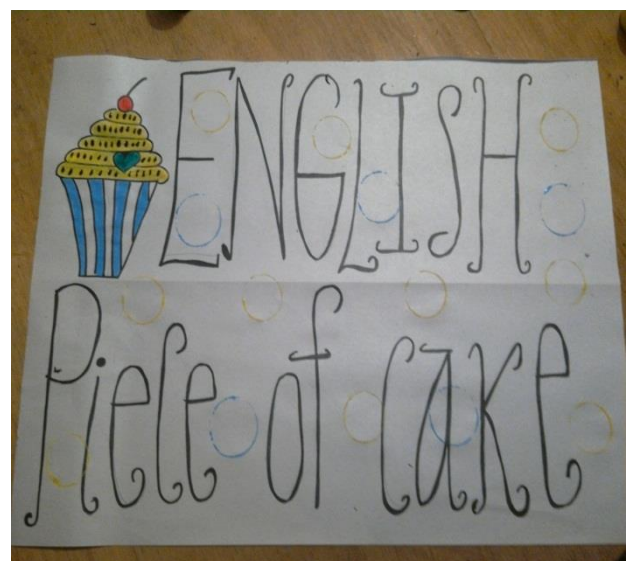 ENGLISH
Piece of cake